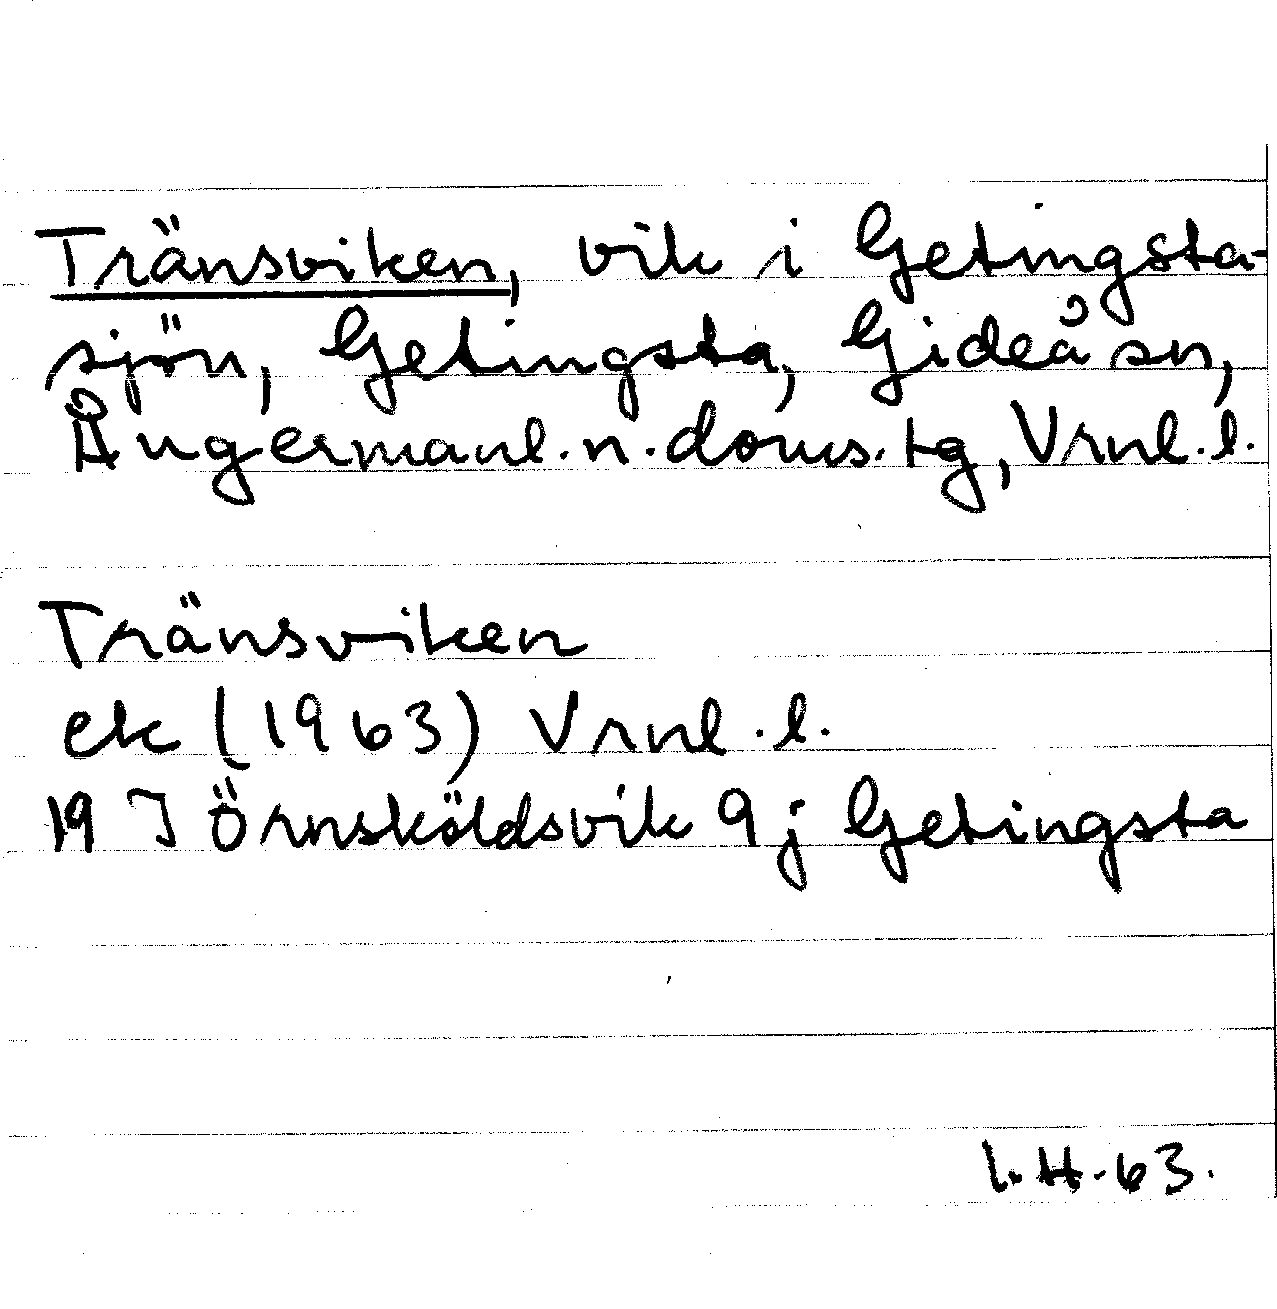 Tränsviken, vik i Getingsta-
sjön, Getingsta, Gideå sn,
Ångermanl. n. doms. tg, Vrnl. l.
Tränsviken
ek (1963) Vrnl. l.
19 J Örnsköldsvik 9j Getingsta
I. H. 63.